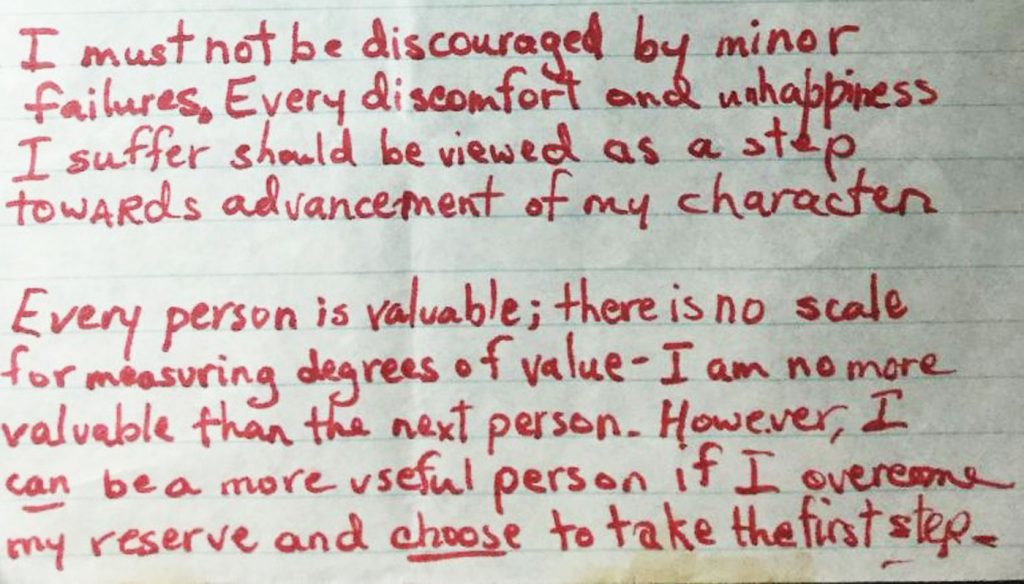 I must not be discouraged by minor
failures. Every discomfort and unhappiness
I suffer should be viewed as a step
towards advancement of my character
Every person is valuable; there is no scale
for measuring degrees of value - I am no more
valuable than the next person. However, I
can be a more useful person if I overcome
my reserve and choose to take the first step.